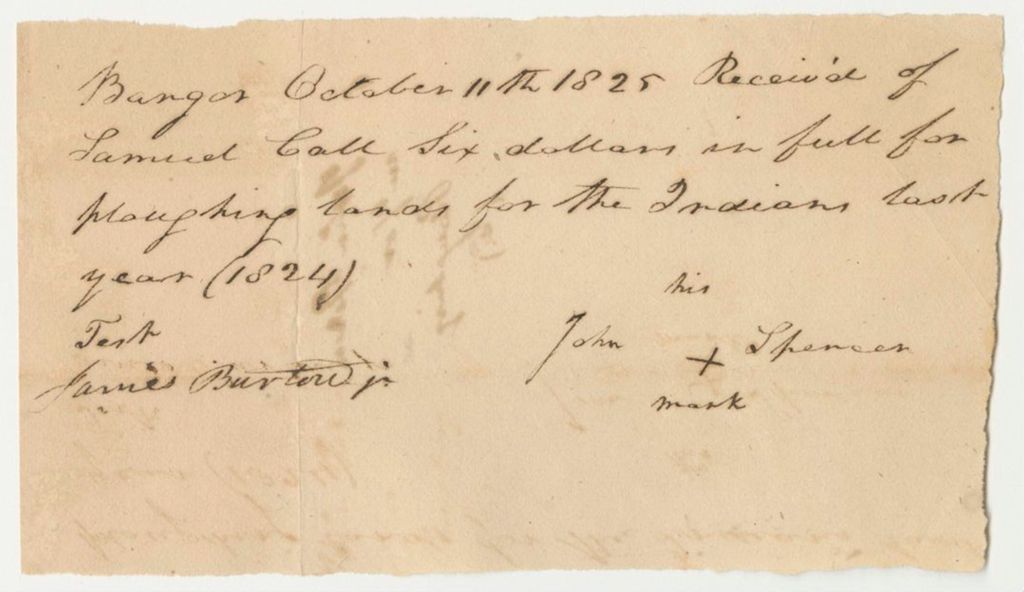 Bangor October 11th 1825 Receiv'd of
Samuel Call Six dollars in full for
ploughing lands for the Indians last
year (1824)
his
Test
John + Spencer
James Burton jr
mark